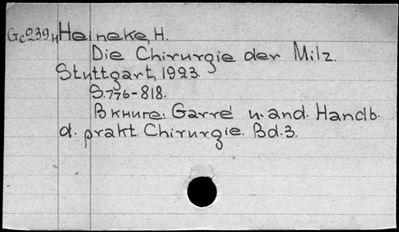 Gc039H Heineke, H.
Die Chirurgie der Milz.
Stuttgart, 1923.
S.776-818.
В книге: Garré u. and. Handb.
d. prakt. Chirurgie. Bd.3.